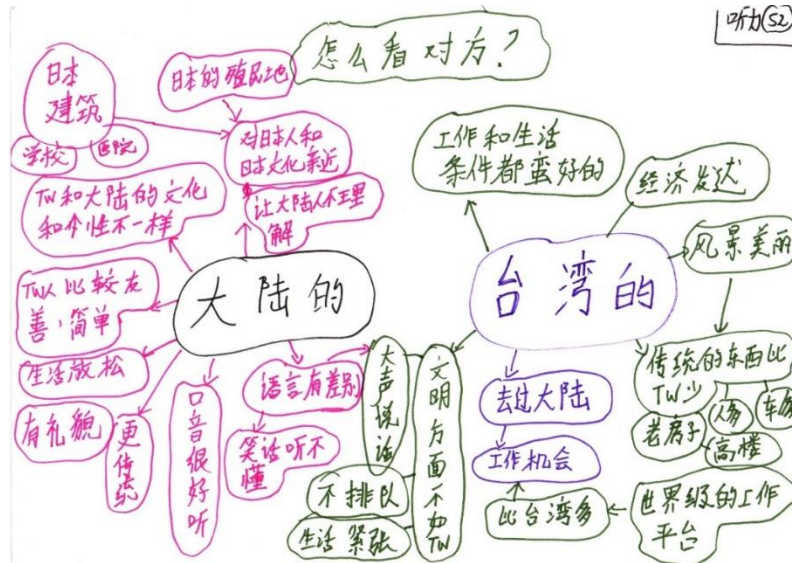 听力(52)
怎么看对方?
日本
建筑
学校
医院
日本的殖民地
对日本人和
日本文化亲近
让大陆人不理
解
TW和大陆的文化
和个性不一样
TW人比较友
善,简单
生活放松
有礼貌
更传统
口音很好听
语言有差别
笑话听不
懂
大陆的
台湾的
工作和生活
条件都蛮好的
经济发达
风景美丽
传统的东西比
TW少
老房子
人多
车多
高楼
世界级的工作
平台
比台湾多
去过大陆
工作机会
文明方面不如TW
大声说话
不排队
生活紧张